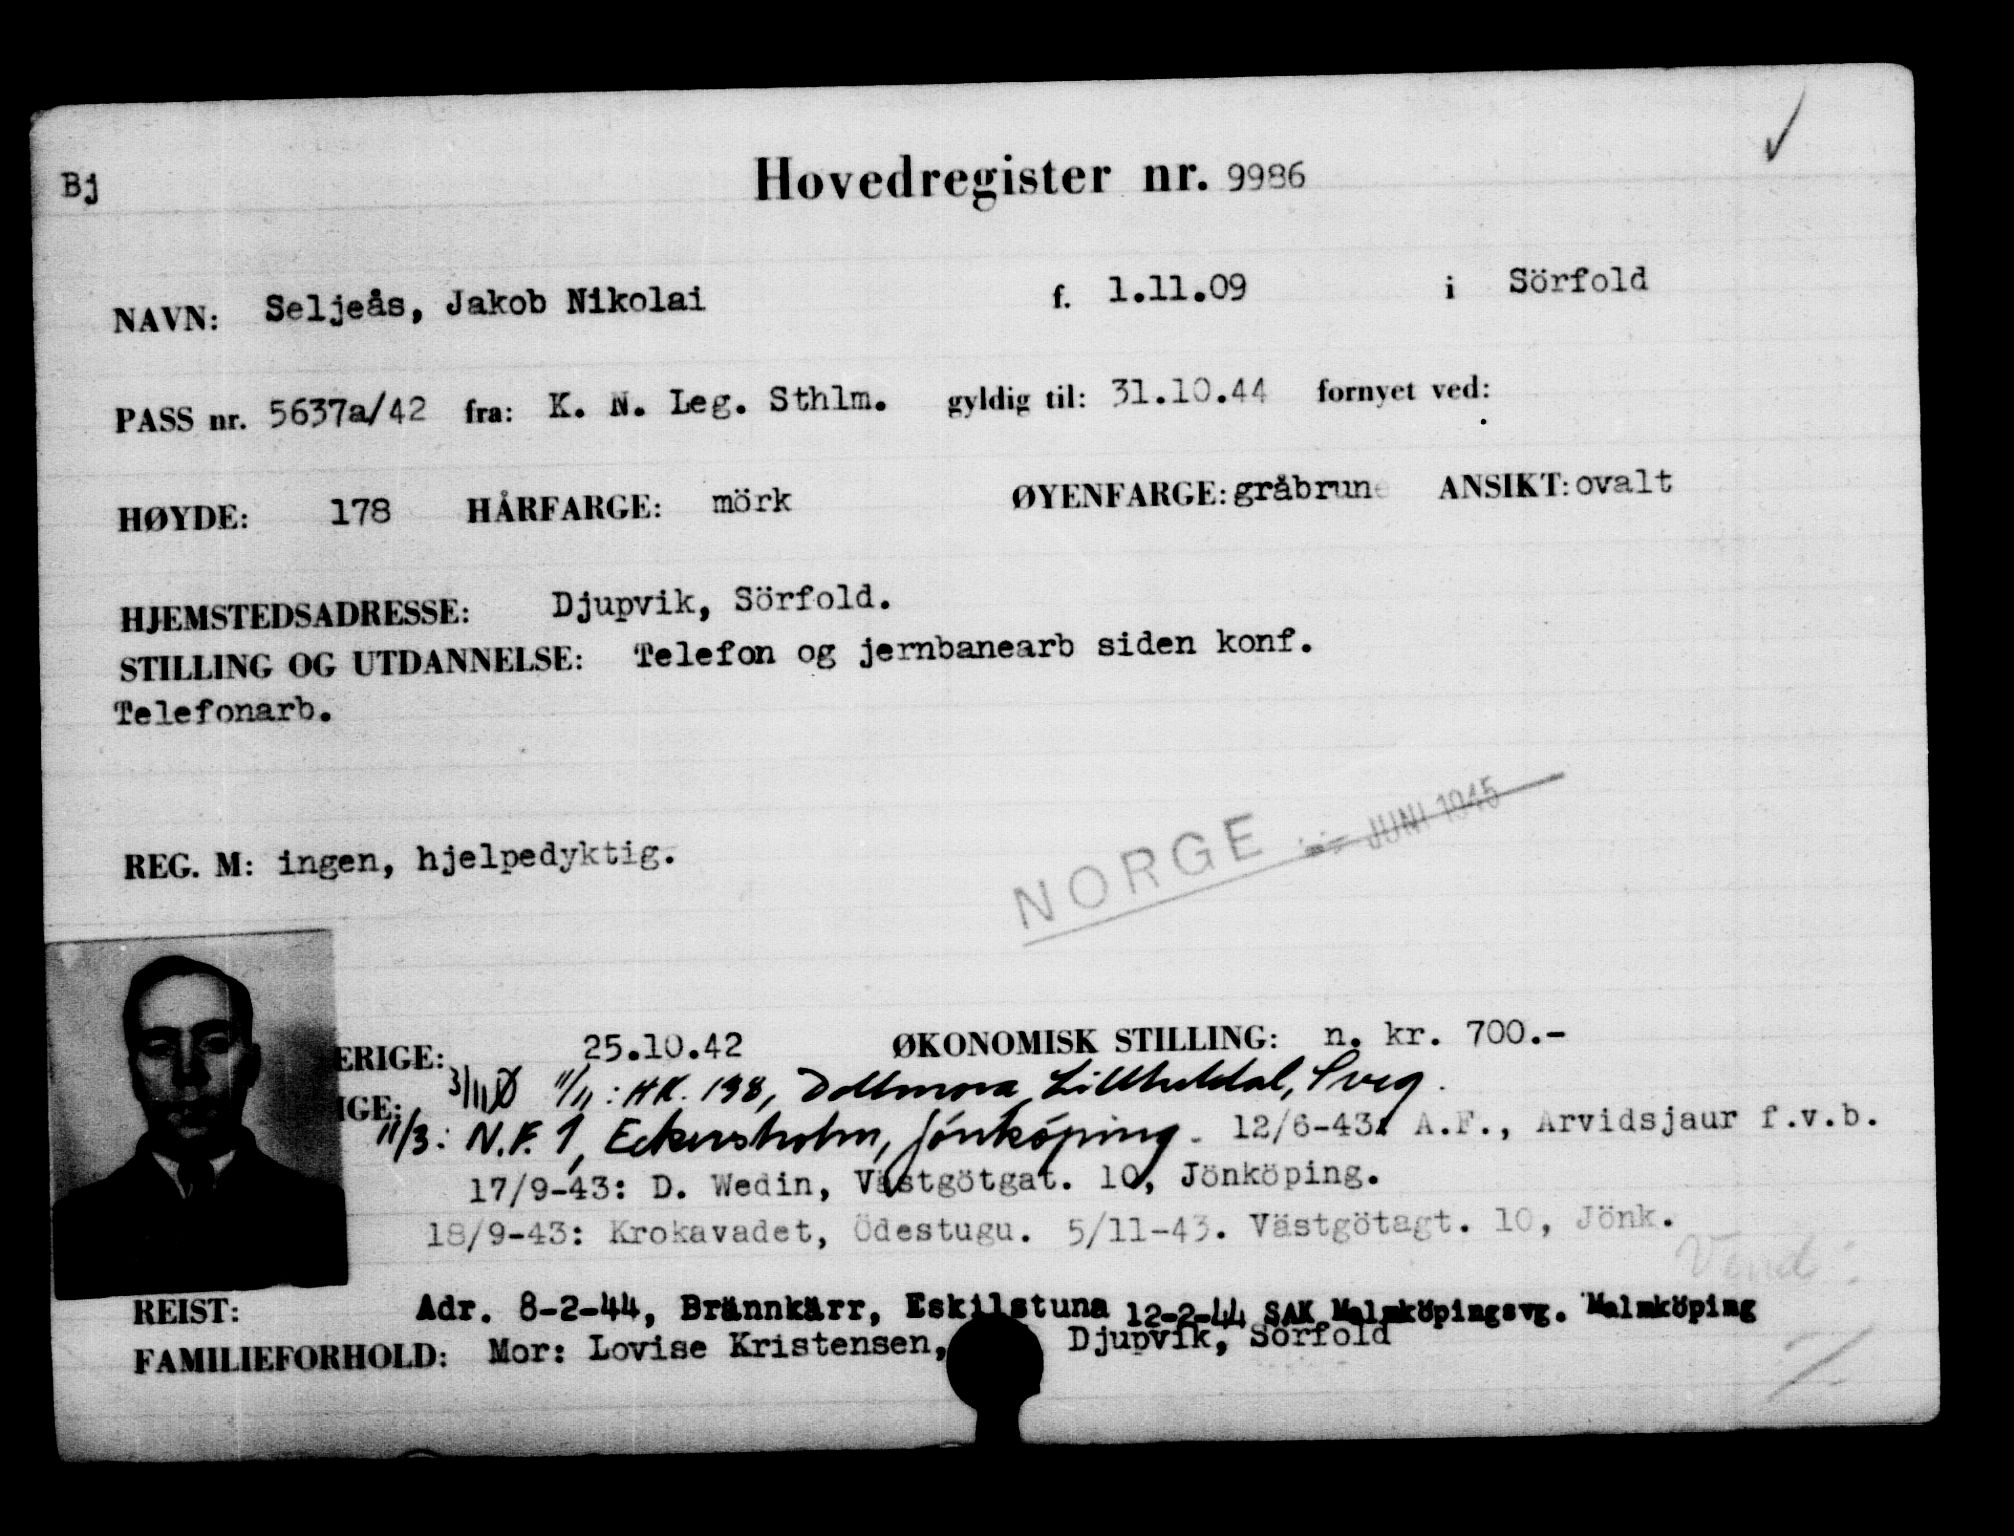 Bj
Hovedregister nr. 9986
NAVN: Seljeås, Jakob Nikolai f. 1.11.09 i Sörfold
PASS nr. 5637a/42 fra: K. N. Leg. Sthlm. gyldig til: 31.10.44 fornyet ved:
HØYDE: 178 HÅRFARGE: mörk ØYENFARGE: gråbrune ANSIKT: ovalt
HJEMSTEDSADRESSE: Djupvik, Sörfold.
STILLING OG UTDANNELSE: Telefon og jernbanearb siden konf.
Telefonarb.
NORGE JUNI 1945
REG. M: ingen, hjelpedyktig.
ERIGE: 25.10.42 ØKONOMISK STILLING: n. kr. 700.-
IGE: 3/11 Ø 11/11: HK. 198, Dollmora, Lillhärdal, Sveg.
11/3: N.F. 1, Eckersholm, Jönköping. 12/6-43: A.F., Arvidsjaur f.v.b.
17/9-43: D. Wedin, Västgötgat. 10, Jönköping.
18/9-43: Krokavadet, Ödestugu. 5/11-43. Västgötagt. 10, Jönk.
Vend:
REIST: Adr. 8-2-44, Brännkärr, Eskilstuna 12-2-44 SAK Malmköpingsvg. Malmköping
FAMILIEFORHOLD: Mor: Lovise Kristensen, Djupvik, Sörfold